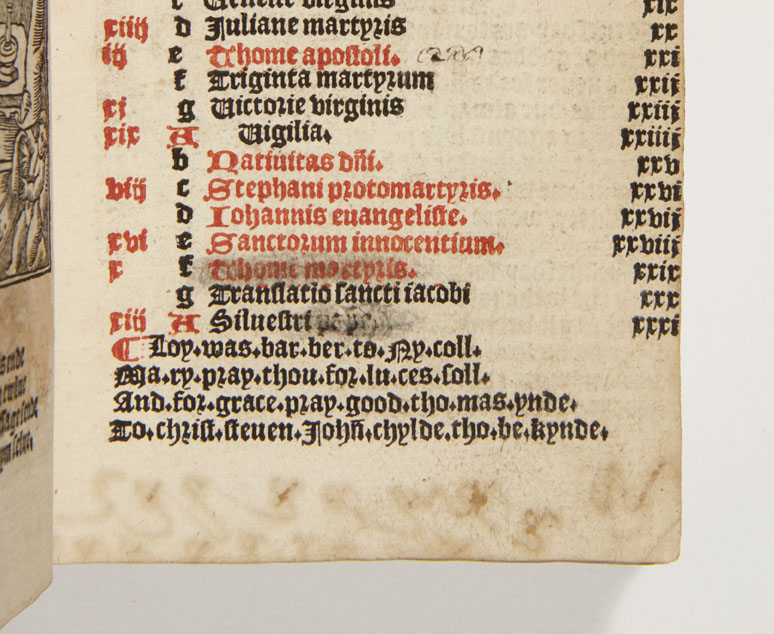 virginis xix
xiiij d Juliane martyris xx
iij e Thome apostoli. xxi
f Triginta martyrum xxij
xi g Uictorie virginis xxiij
xix A Uigilia. xxiiij
b Natiuitas dñi. xxv
viij c Stephani protomartyris. xxvi
d Iohannis euangeliste. xxvij
xvi e Sanctorum innocentium. xxviij
x f Thome martyris. xxix
g Translatio sancti iacobi xxx
xiij A Siluestri xxxi
Loy.was.bar.ber.to.Ny.coll.
Ma.ry.pray.thou.for.lu.ces.soll.
And.for.grace.pray.good.tho.mas.ynde.
To.christ.steuen.Johñ.chylde.tho.be.kynde.